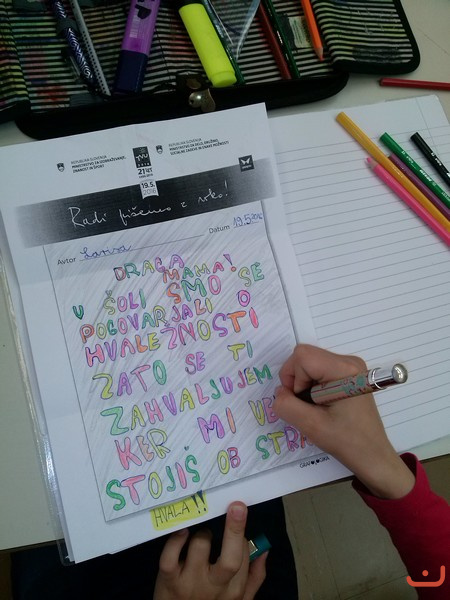 REPUBLIKA SLOVENIJA
MINISTRSTVO ZA IZOBRAŽEVANJE,
ZNANOST IN ŠPORT
REPUBLIKA SLOVENIJA
MINISTRSTVO ZA DELO, DRUŽINO,
SOCIALNE ZADEVE IN ENAKE MOŽNOSTI
TVU
21 let
19.5.
2016
Radi pišemo z roko!
Avtor
Datum 19.5.2016
DRAGA
MAMA!
V ŠOLI SMO SE
POGOVARJALI O
HVALEŽNOSTI
ZATO SE TI
ZAHVALJUJEM
KER MI
STOJIŠ OB
HVALA!!